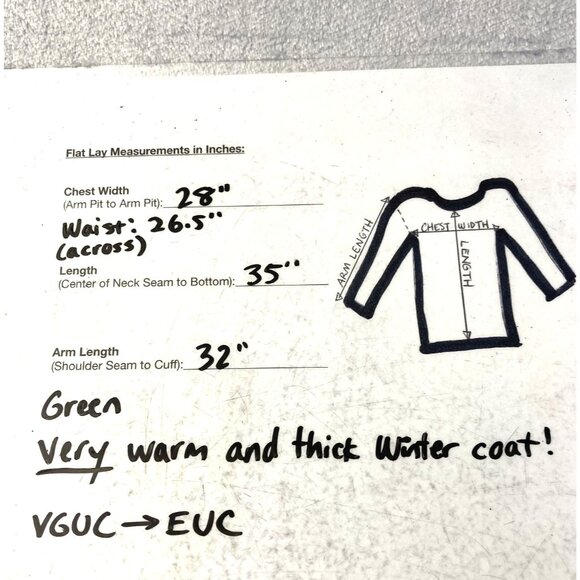 Flat Lay Measurements in Inches:
Chest Width
(Arm Pit to Arm Pit): 28"
Waist: 26.5"
(across)
Length
(Center of Neck Seam to Bottom): 35"
Arm Length
(Shoulder Seam to Cuff): 32"
Green
Very warm and thick Winter coat!
VGUC → EUC
ARM LENGTH
CHEST WIDTH
LENGTH